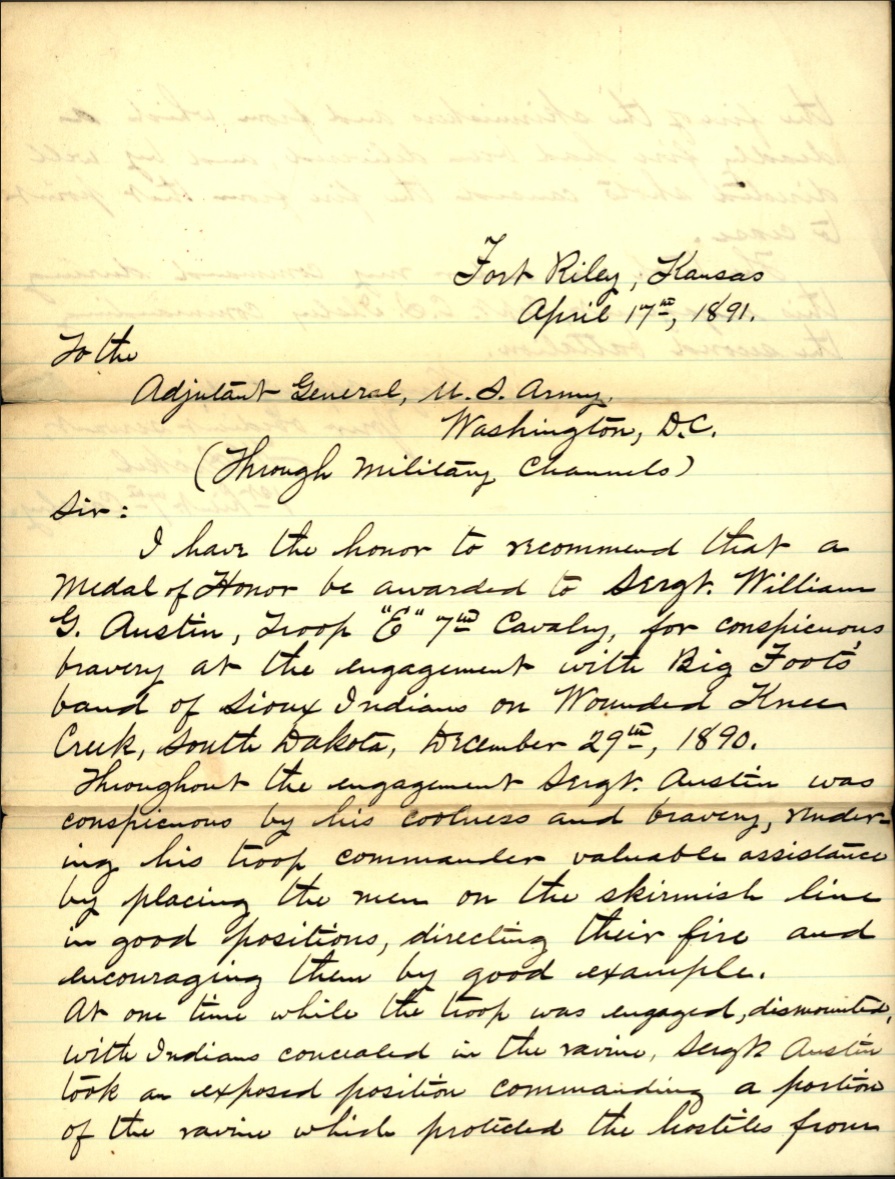 Fort Riley, Kansas
April 17th, 1891.
To the
Adjutant General, U.S. Army,
Washington, D.C.
(Through Military Channels)
Sir:
I have the honor to recommend that a
Medal of Honor be awarded to Sergt. William
G. Austin, Troop "E" 7th Cavalry, for conspicuous
bravery at the engagement with Big Foot's
band of Sioux Indians on Wounded Knee
Creek, South Dakota, December 29th, 1890.
Throughout the engagement Sergt. Austin was
conspicuous by his coolness and bravery, render-
ing his troop commander valuable assistance
by placing the men on the skirmish line
in good positions, directing their fire and
encouraging them by good example.
At one time while the troop was engaged, dismounted,
with Indians concealed in the ravine, Sergt Austin
took an exposed position commanding a portion
of the ravine which protected the hostiles from